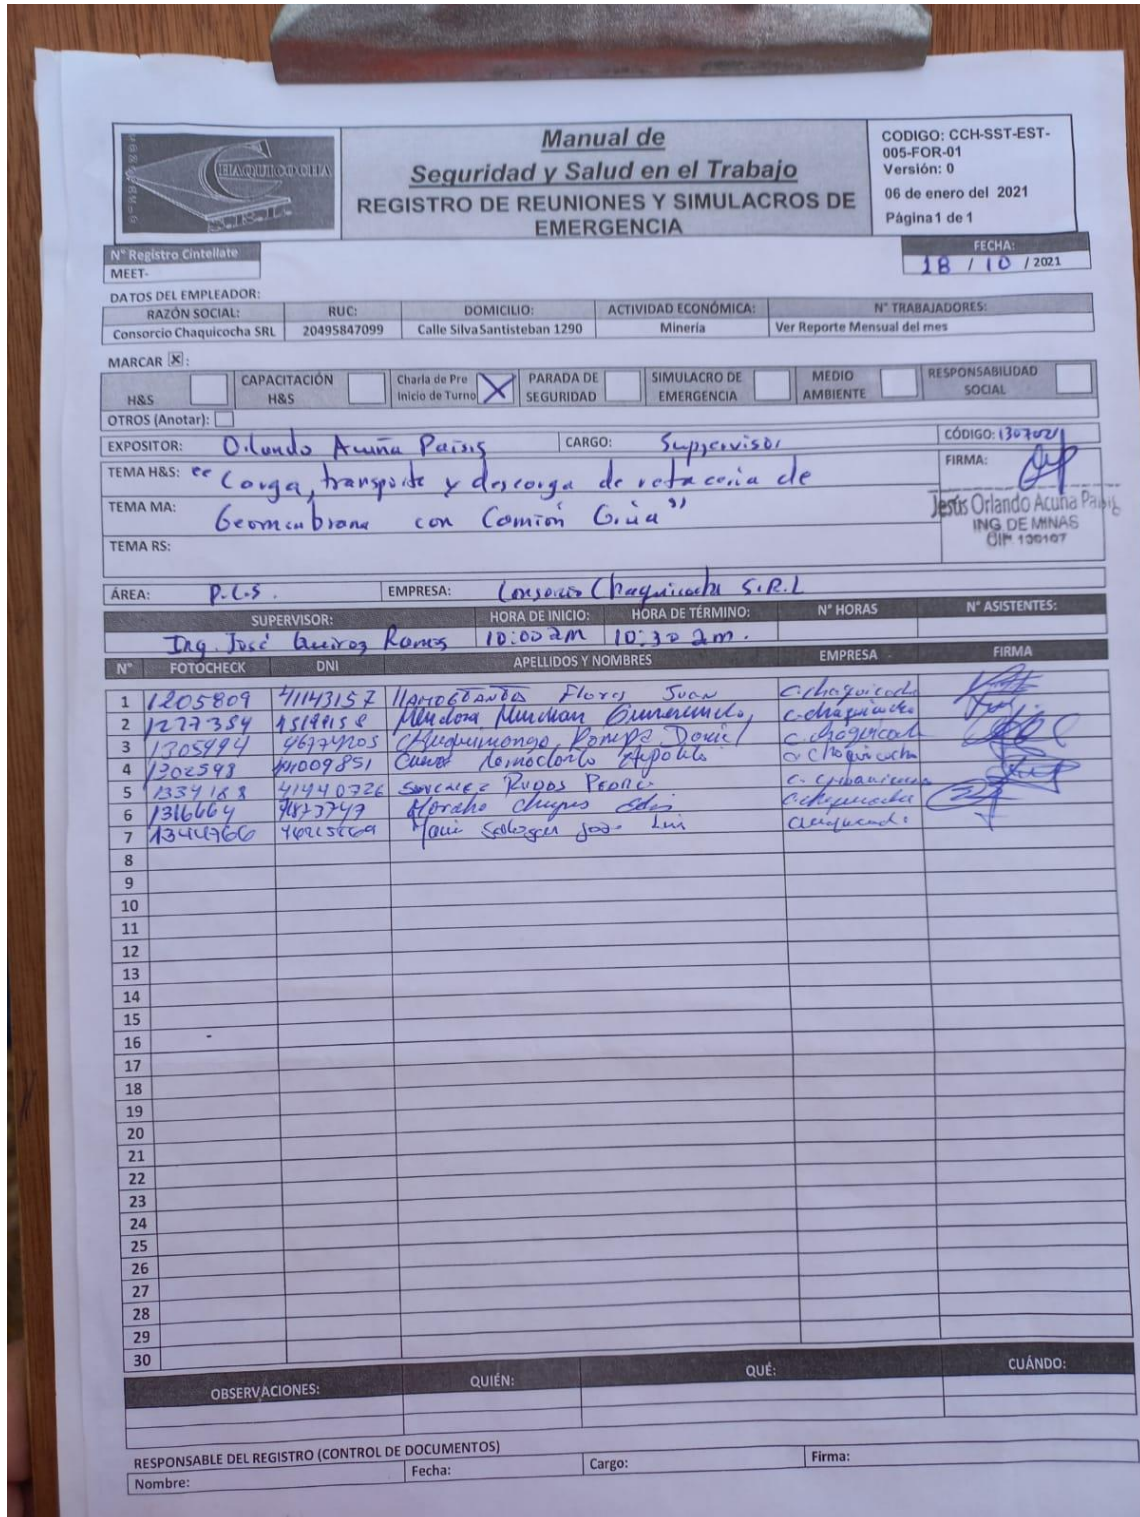 CHAQUICOCHA
S.R.L.
Manual de
Seguridad y Salud en el Trabajo
REGISTRO DE REUNIONES Y SIMULACROS DE
EMERGENCIA
CODIGO: CCH-SST-EST-
005-FOR-01
Versión: 0
06 de enero del 2021
Página1 de 1
N° Registro Cintellate
MEET-
FECHA:
18 / 10 / 2021
DATOS DEL EMPLEADOR:
RAZÓN SOCIAL: RUC: DOMICILIO: ACTIVIDAD ECONÓMICA: N° TRABAJADORES:
Consorcio Chaquicocha SRL 20495847099 Calle Silva Santisteban 1290 Minería Ver Reporte Mensual del mes
MARCAR X:
H&S CAPACITACIÓN H&S Charla de Pre Inicio de Turno X PARADA DE SEGURIDAD SIMULACRO DE EMERGENCIA MEDIO AMBIENTE RESPONSABILIDAD SOCIAL
OTROS (Anotar):
EXPOSITOR: Orlando Acuña Paisig CARGO: Supervisor CÓDIGO: 1307021
TEMA H&S: "Carga, transporte y descarga de retaceria de FIRMA:
TEMA MA: Geomenbrana con Camión Grúa"
Jesús Orlando Acuña Paisig
ING. DE MINAS
CIP
TEMA RS:
ÁREA: P.C.S. EMPRESA: Consorcio Chaquicocha S.R.L
SUPERVISOR: HORA DE INICIO: HORA DE TÉRMINO: N° HORAS N° ASISTENTES:
Ing. José Quiroz Ramos 10:00 am 10:30 am.
N° FOTOCHECK DNI APELLIDOS Y NOMBRES EMPRESA FIRMA
1 1205809 41143157 Flores Juan C.chaquicocha
2 1277354 Mendoza c.chaquicocha
3 1305994 Daniel c.chaquicocha
4 1302598 c chaquicocha
5 1334188 41940726 SANCHEZ
6 1316664 c.chaquicocha
7 1344766 Luis
8
9
10
11
12
13
14
15
16
17
18
19
20
21
22
23
24
25
26
27
28
29
30
OBSERVACIONES: QUIÉN: QUÉ: CUÁNDO:
RESPONSABLE DEL REGISTRO (CONTROL DE DOCUMENTOS)
Nombre: Fecha: Cargo: Firma: